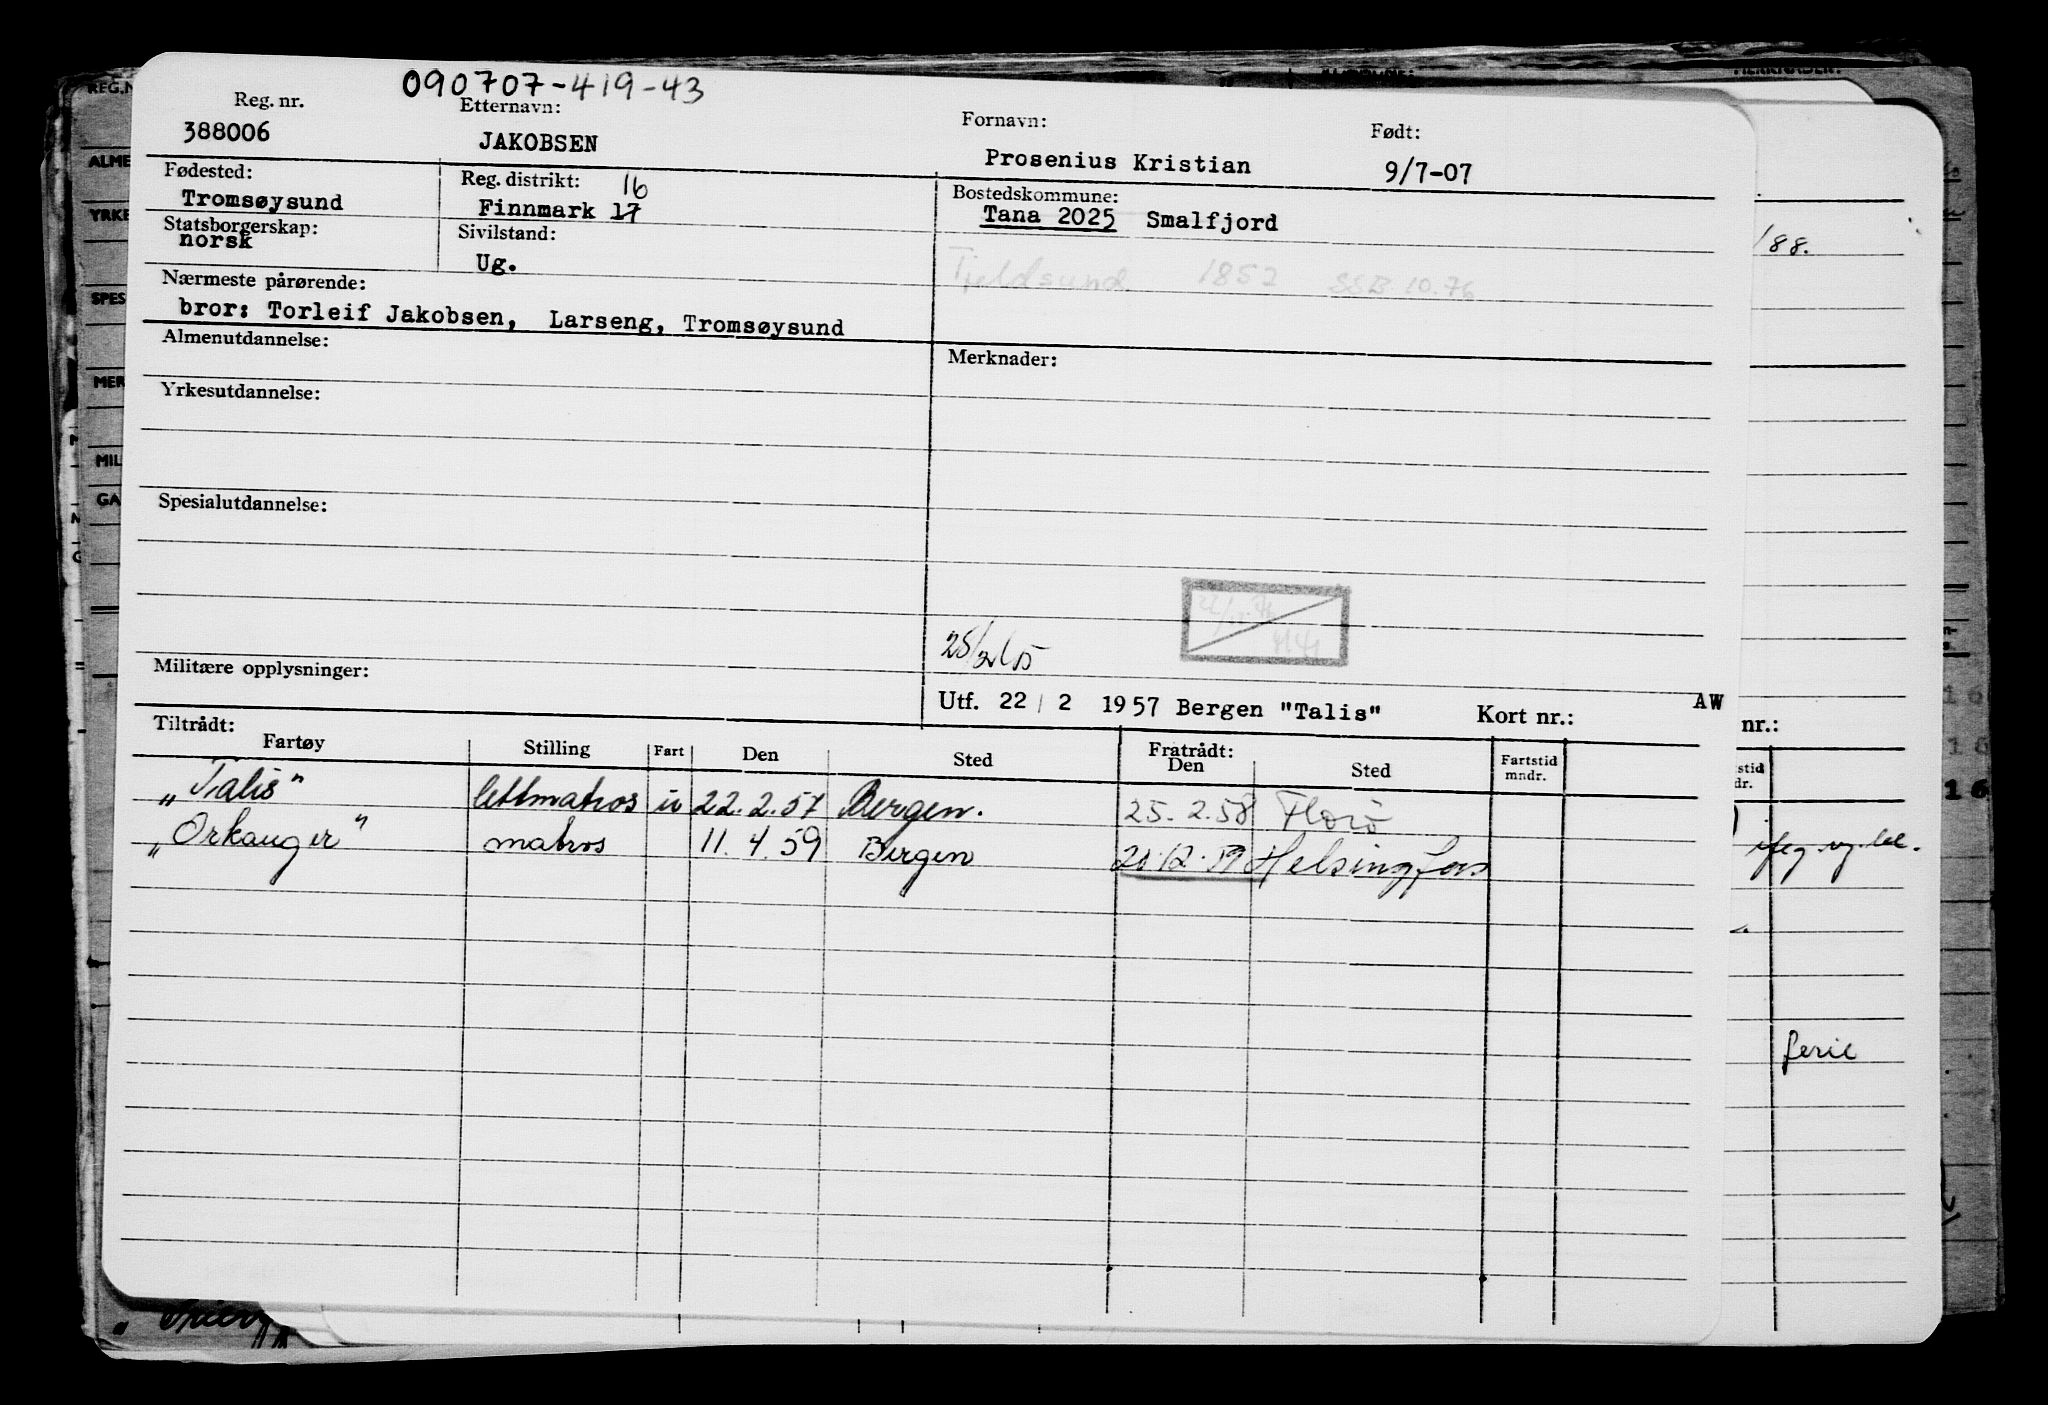 090707-419-43
Reg. nr. Etternavn: Fornavn: Født:
388006 JAKOBSEN Prosenius Kristian 9/7-07
Fødested: Reg. distrikt: 16 Bostedskommune:
Tromsøysund Finnmark 17 Tana 2025 Smalfjord
Statsborgerskap: Sivilstand:
norsk Ug.
Tjeldsund 1852 SSB.10.76
Nærmeste pårørende:
bror: Torleif Jakobsen, Larseng, Tromsøysund
Almenutdannelse: Merknader:
Yrkesutdannelse:
Spesialutdannelse:
Militære opplysninger:
Utf. 22 / 2 1957 Bergen "Talis" Kort nr.: AW
Tiltrådt: Fratrådt:
Fartøy Stilling Fart Den Sted Den Sted Fartstid mndr.
"Talis" lettmatros u 22.2.57 Bergen. 25.2.58 Florø
"Orkanger" matros 11.4.59 Bergen 20.12.59 Helsingfors
REG.N
ALME
YRKE
SPES
MER
MIL
GA
/88.
nr.:
stid
dr.
ferie
16
16
16